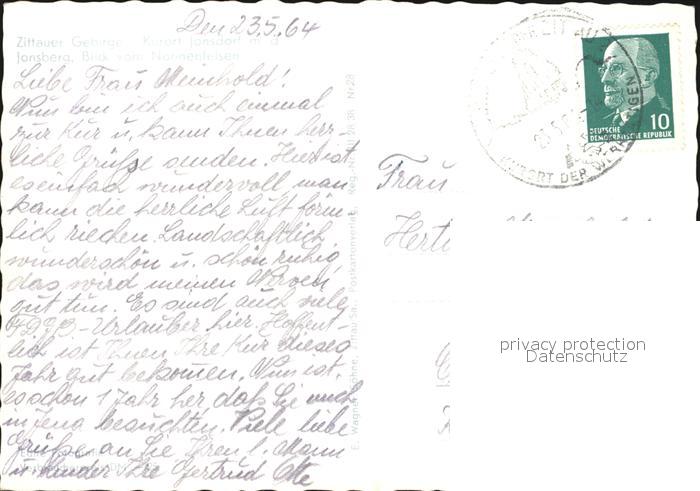 Den 23.5.64
Zittauer Gebirge Kurort Jonsdorf m. d.
Jonsberg, Blick vom Nonnenfelsen
Liebe Frau Meinhold!
Nun bin ich auch einmal
zur Kur u. kann Ihnen herz-
liche Grüße senden. Hier ist
es einfach wundervoll, man
kann die herrliche Luft förm-
lich riechen. Landschaftlich
wunderschön u. schön ruhig,
das wird meinen Nerven
gut tun. Es sind auch viele
FDGB-Urlauber hier. Hoffent-
lich ist Ihnen Ihre Kur dieses
Jahr gut bekommen. Nun ist
es schon 1 Jahr her, daß Sie mich
in Jena besuchten. Viele liebe
Grüße an Sie, Ihren l. Mann
u. Kinder Ihre Gertrud
E. Wagner Söhne, Zittau Sa., Postkartenverlag
KURORT DER
10
DEUTSCHE
DEMOKRATISCHE REPUBLIK
Frau
privacy protection
Datenschutz